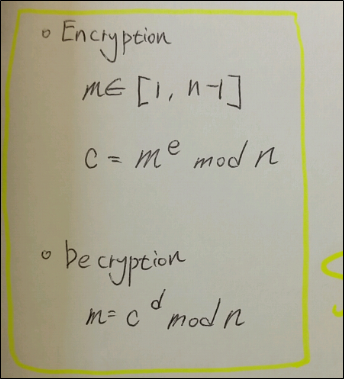 ◦ Encryption
m∈ [1, n-1]
c = m^e mod n
◦ Decryption
m= c^d mod n